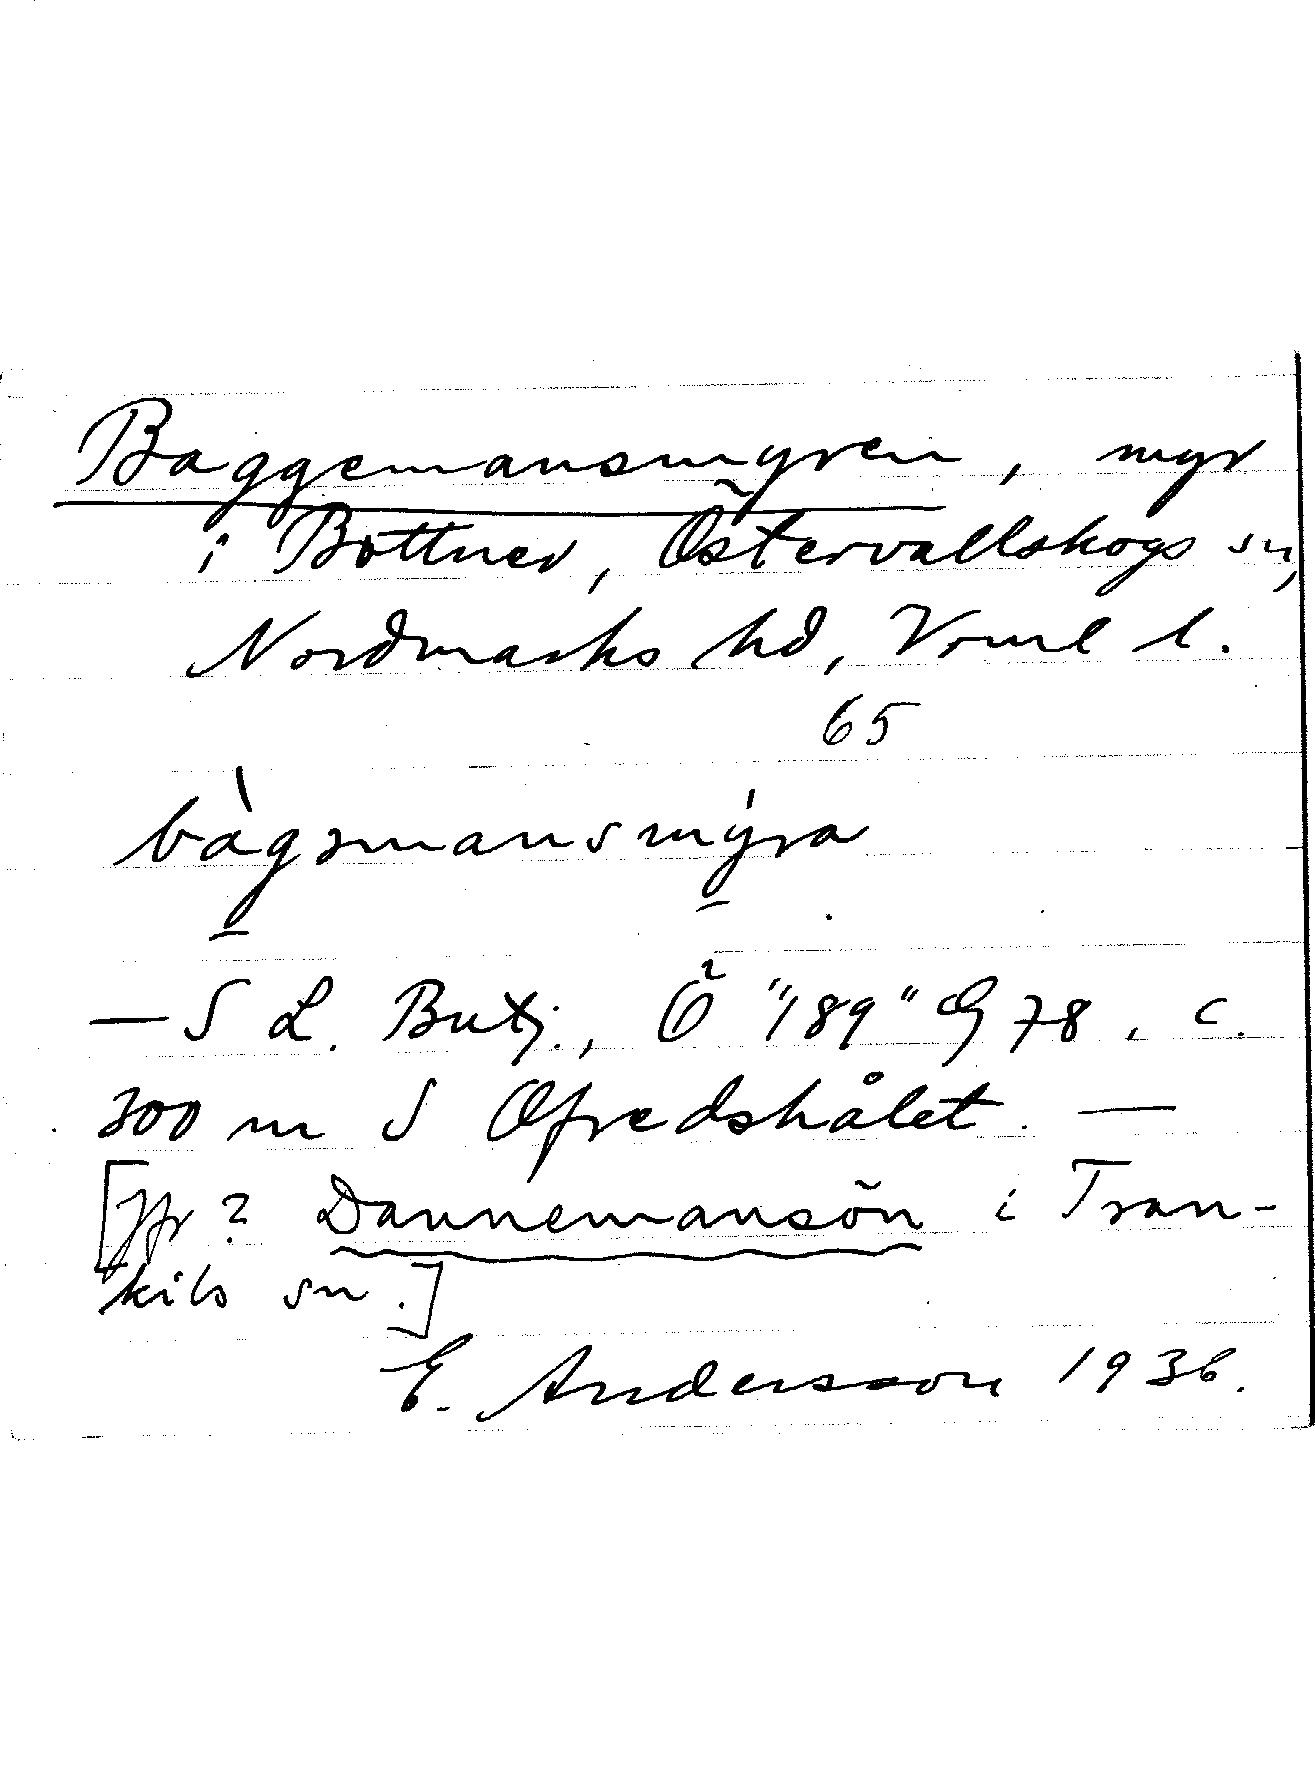 Baggemansmyren, myr
i Bottnev, Östervallskogs sn,
Nordmarks hd, Vrml l.
65
bàgəmansmýra
— S L. Butj., Ö "189" G 78. c.
300 m S Ofredshålet. —
[Jfr ? Dannemansön i Tran-
kils sn.]
E. Andersson 1936.